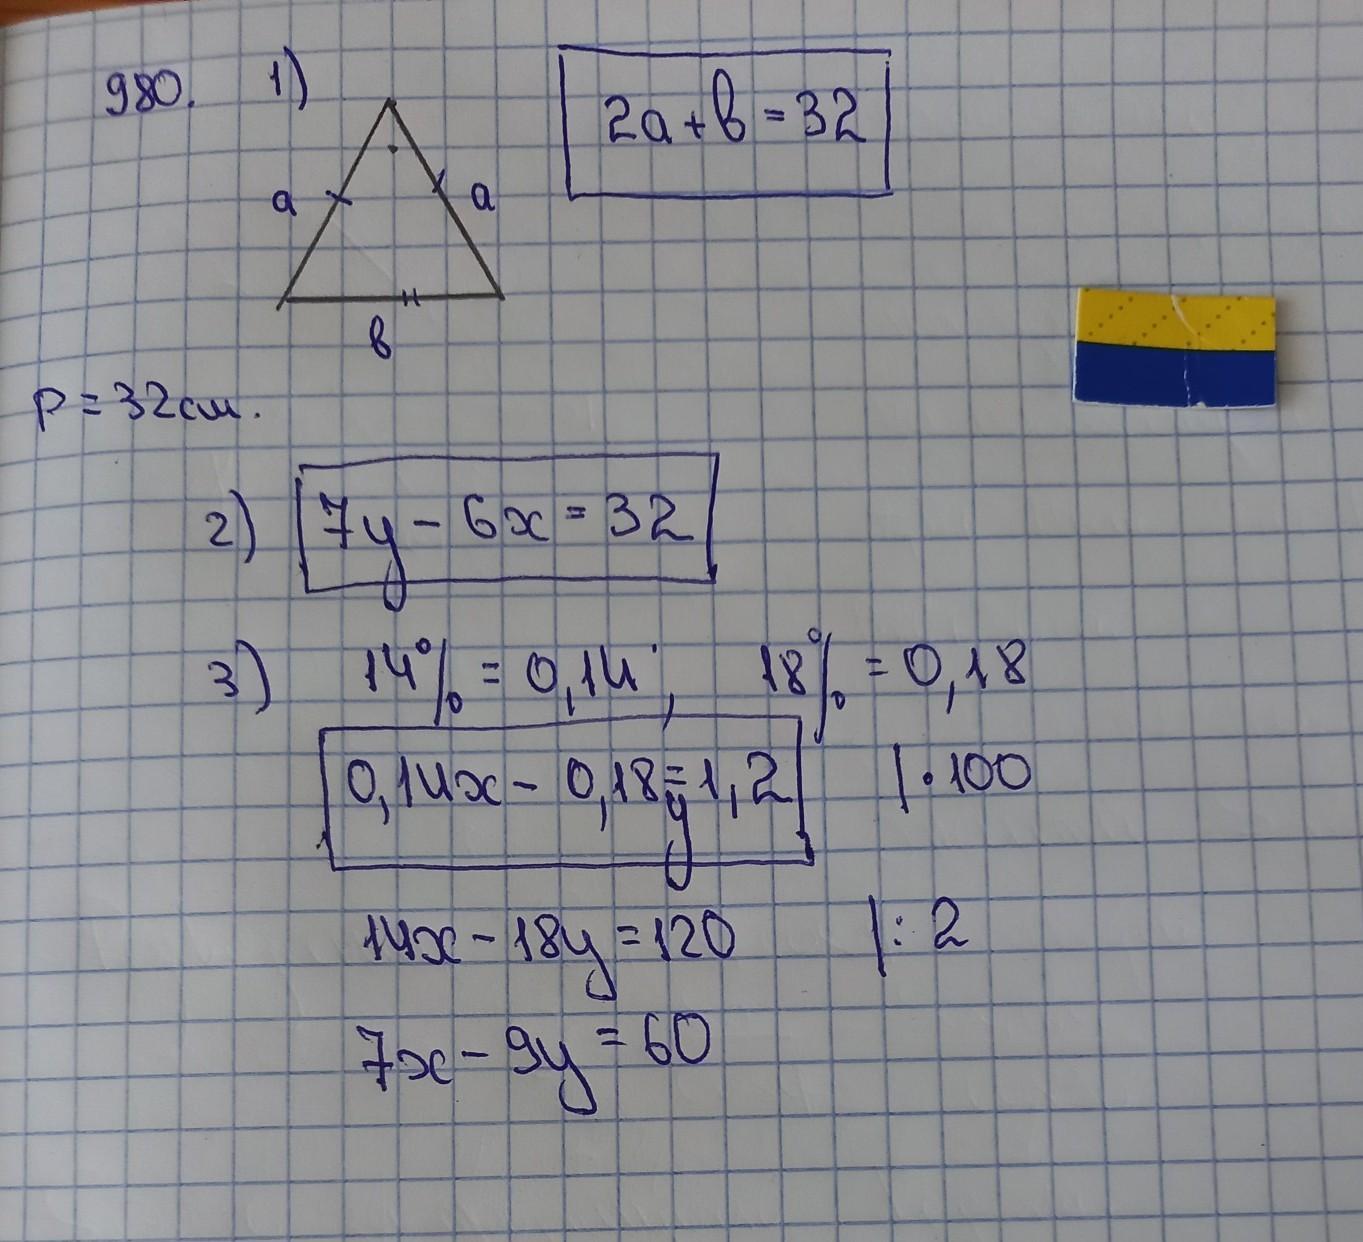 980. 1) 2a+b=32
a a
b
P=32см.
2) 7y-6x=32
3) 14%=0,14; 18%=0,18
0,14x-0,18y=1,2 |·100
14x-18y=120 |:2
7x-9y=60